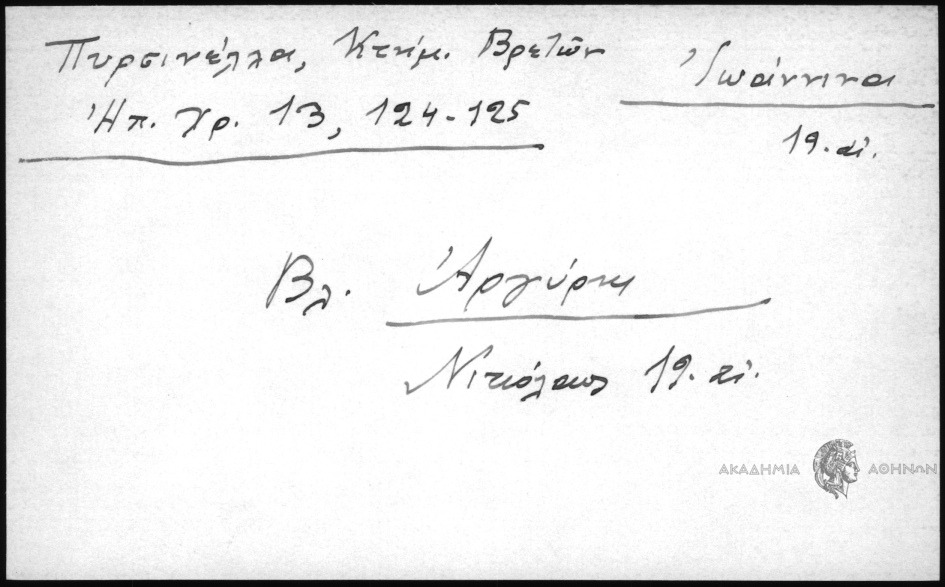 Πυρσινέλλα, Κτημ. Βρετῶν
Ἠπ. Χρ. 13, 124-125
Ἰωάννινα
19. αἰ.
Βλ. Ἀργύρη
Νικόλαος 19. αἰ.
ΑΚΑΔΗΜΙΑ ΑΘΗΝΩΝ